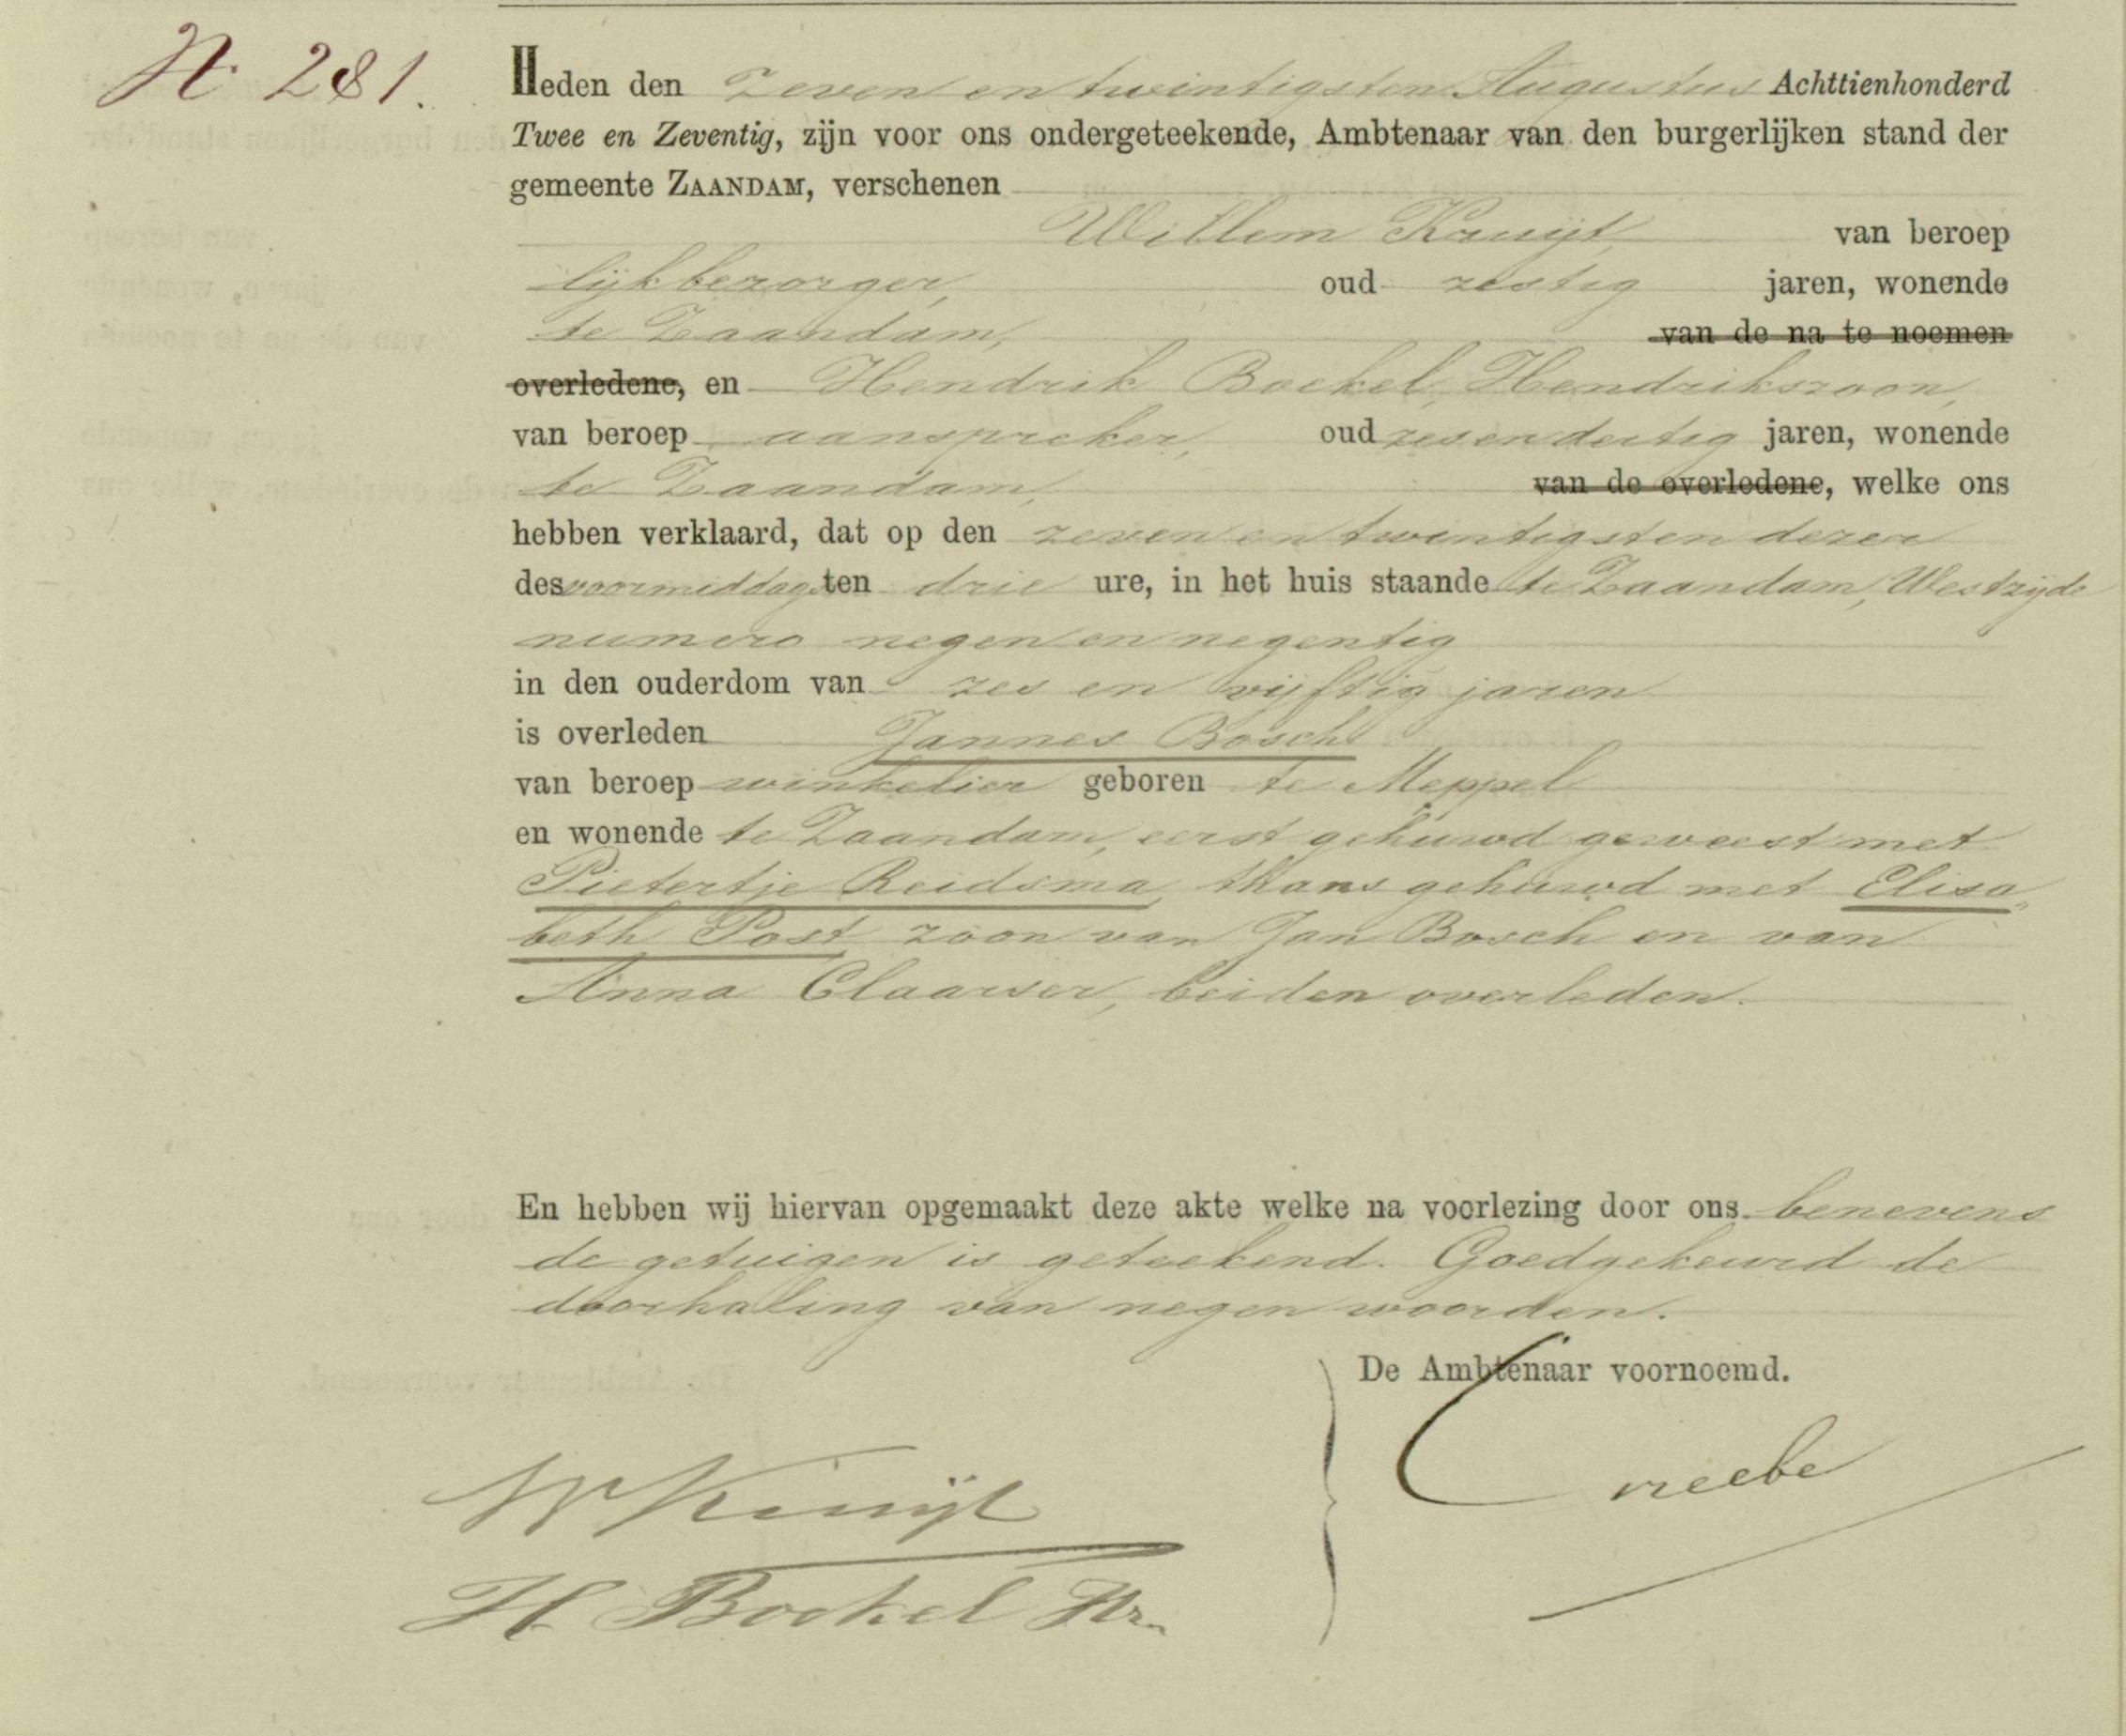 N. 281.
Heden den zeven en twintigsten Augustus Achttienhonderd
Twee en Zeventig, zijn voor ons ondergeteekende, Ambtenaar van den burgerlijken stand der
gemeente ZAANDAM, verschenen
Willem Kruijt, van beroep
lijkbezorger, oud zestig jaren, wonende
te Zaandam, van de na te noemen
overledene, en Hendrik Boekel, Hendrikszoon,
van beroep aanspreker, oud zes en dertig jaren, wonende
te Zaandam, van de overledene, welke ons
hebben verklaard, dat op den zeven en twintigsten dezer
des voormiddags ten drie ure, in het huis staande te Zaandam, Westzijde
numero negen en negentig
in den ouderdom van zes en vijftig jaren
is overleden Jannes Bosch
van beroep winkelier geboren te Meppel
en wonende te Zaandam, eerst gehuwd geweest met
Pietertje Reidsma, thans gehuwd met Elisa„
beth Post zoon van Jan Bosch en van
Anna Claasser, beiden overleden.
En hebben wij hiervan opgemaakt deze akte welke na voorlezing door ons benevens
de getuigen is geteekend. Goedgekeurd de
doorhaling van negen woorden.
De Ambtenaar voornoemd.
W Kruijt
H Boekel Hz.